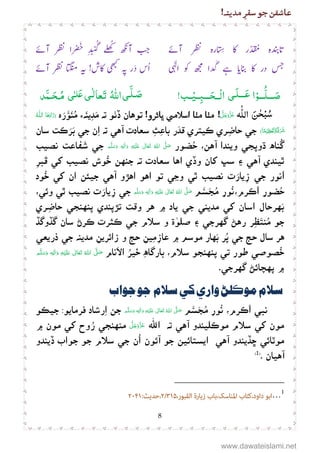 عاشقن جو سفرِ مدينہ!
تابندہ مُقدّر کا ستارہ نظر آئے جب آنکھ کُھلے گُنبدِ خَضرا نظر آئے
جس در کا بنایا ہے گدا مجھ کو الٰہی اُس در پہ کبھی کاش! یہ منگتا نظر آئے
صَلُّوْا عَلَی الْحَبِیْب! صَلَّی اللّٰہُ تَعَالٰی عَلٰی مُحَمَّد
سُبْحٰنَ اللہ! مٺا مٺا اسلامي ڀائرو! توهان ڏٺو تہ مدينۂ مُنَوَّرَہ
جي حاضِري ڪيتري قدَر باعِثِ سعادت آهي تہ اِن جي بَرڪت سان
گُناهہ ڌوپجي ويندا آهن، حُضور صَلَّی اللہُ تَعَالٰی عَلَیْہِ وَاٰلِہٖ وَسَلَّم جي شَفاعَت نصيب
ٿيندي آهي ۽ سڀ کان وڏي اها سعادت تہ جنهن خُوش نصيب کي قبرِ
اَنور جي زيارَت نصيب ٿي وڃي تو اهو اهڙو آهي جيئن اُن کي خُود
حُضورِ اَڪرم، نُورِ مُجَسَّم صَلَّی اللہُ تَعَالٰی عَلَیْہِ وَاٰلِہٖ وَسَلَّم جي زيارَت نصيب ٿي وئي،
بَهرحال اسان کي مديني جي ياد ۾ هر وقت تڙپندي پنهنجي حاضِري
جو مُنتَظِر رهڻ گهرجي ۽ صلوٰۃ ۽ سلام جي ڪثرت ڪرڻ سان گڏوگڏ
هر سال حج جي پُر بَهار موسم ۾ عازِمينِ حج ۽ زائرينِ مدينہ جي ذريعي
خُصوصي طور تي پنهنجو سلام، بارگاہِ خَيرُ الاَنام صَلَّی اللہُ تَعَالٰی عَلَیْہِ وَاٰلِہٖ وَسَلَّم
۾ پهچائڻ گهرجي.
سلام موڪلڻ واري کي سلام جو جواب
نبي اَڪرم، نُورِ مُجَسَّم صَلَّی اللہُ تَعَالٰی عَلَیْہِ وَاٰلِہٖ وَسَلَّم جن اِرشاد فرمايو: جيڪو
مون کي سلام موڪليندو آهي تہ اللہ عَزَّوَجَلَّ منهنجي رُوح کي مون ۾
موٽائي ڇڏيندو آهي ايستائين جو آئون اُن جي سلام جو جواب ڏيندو
آهيان.(1)
1 ... ابو داود، کتاب المناسک، باب زيارۃ القبور، ۲/۳۱۵، حديث: ۲۰۴۱
8
www.dawateislami.net